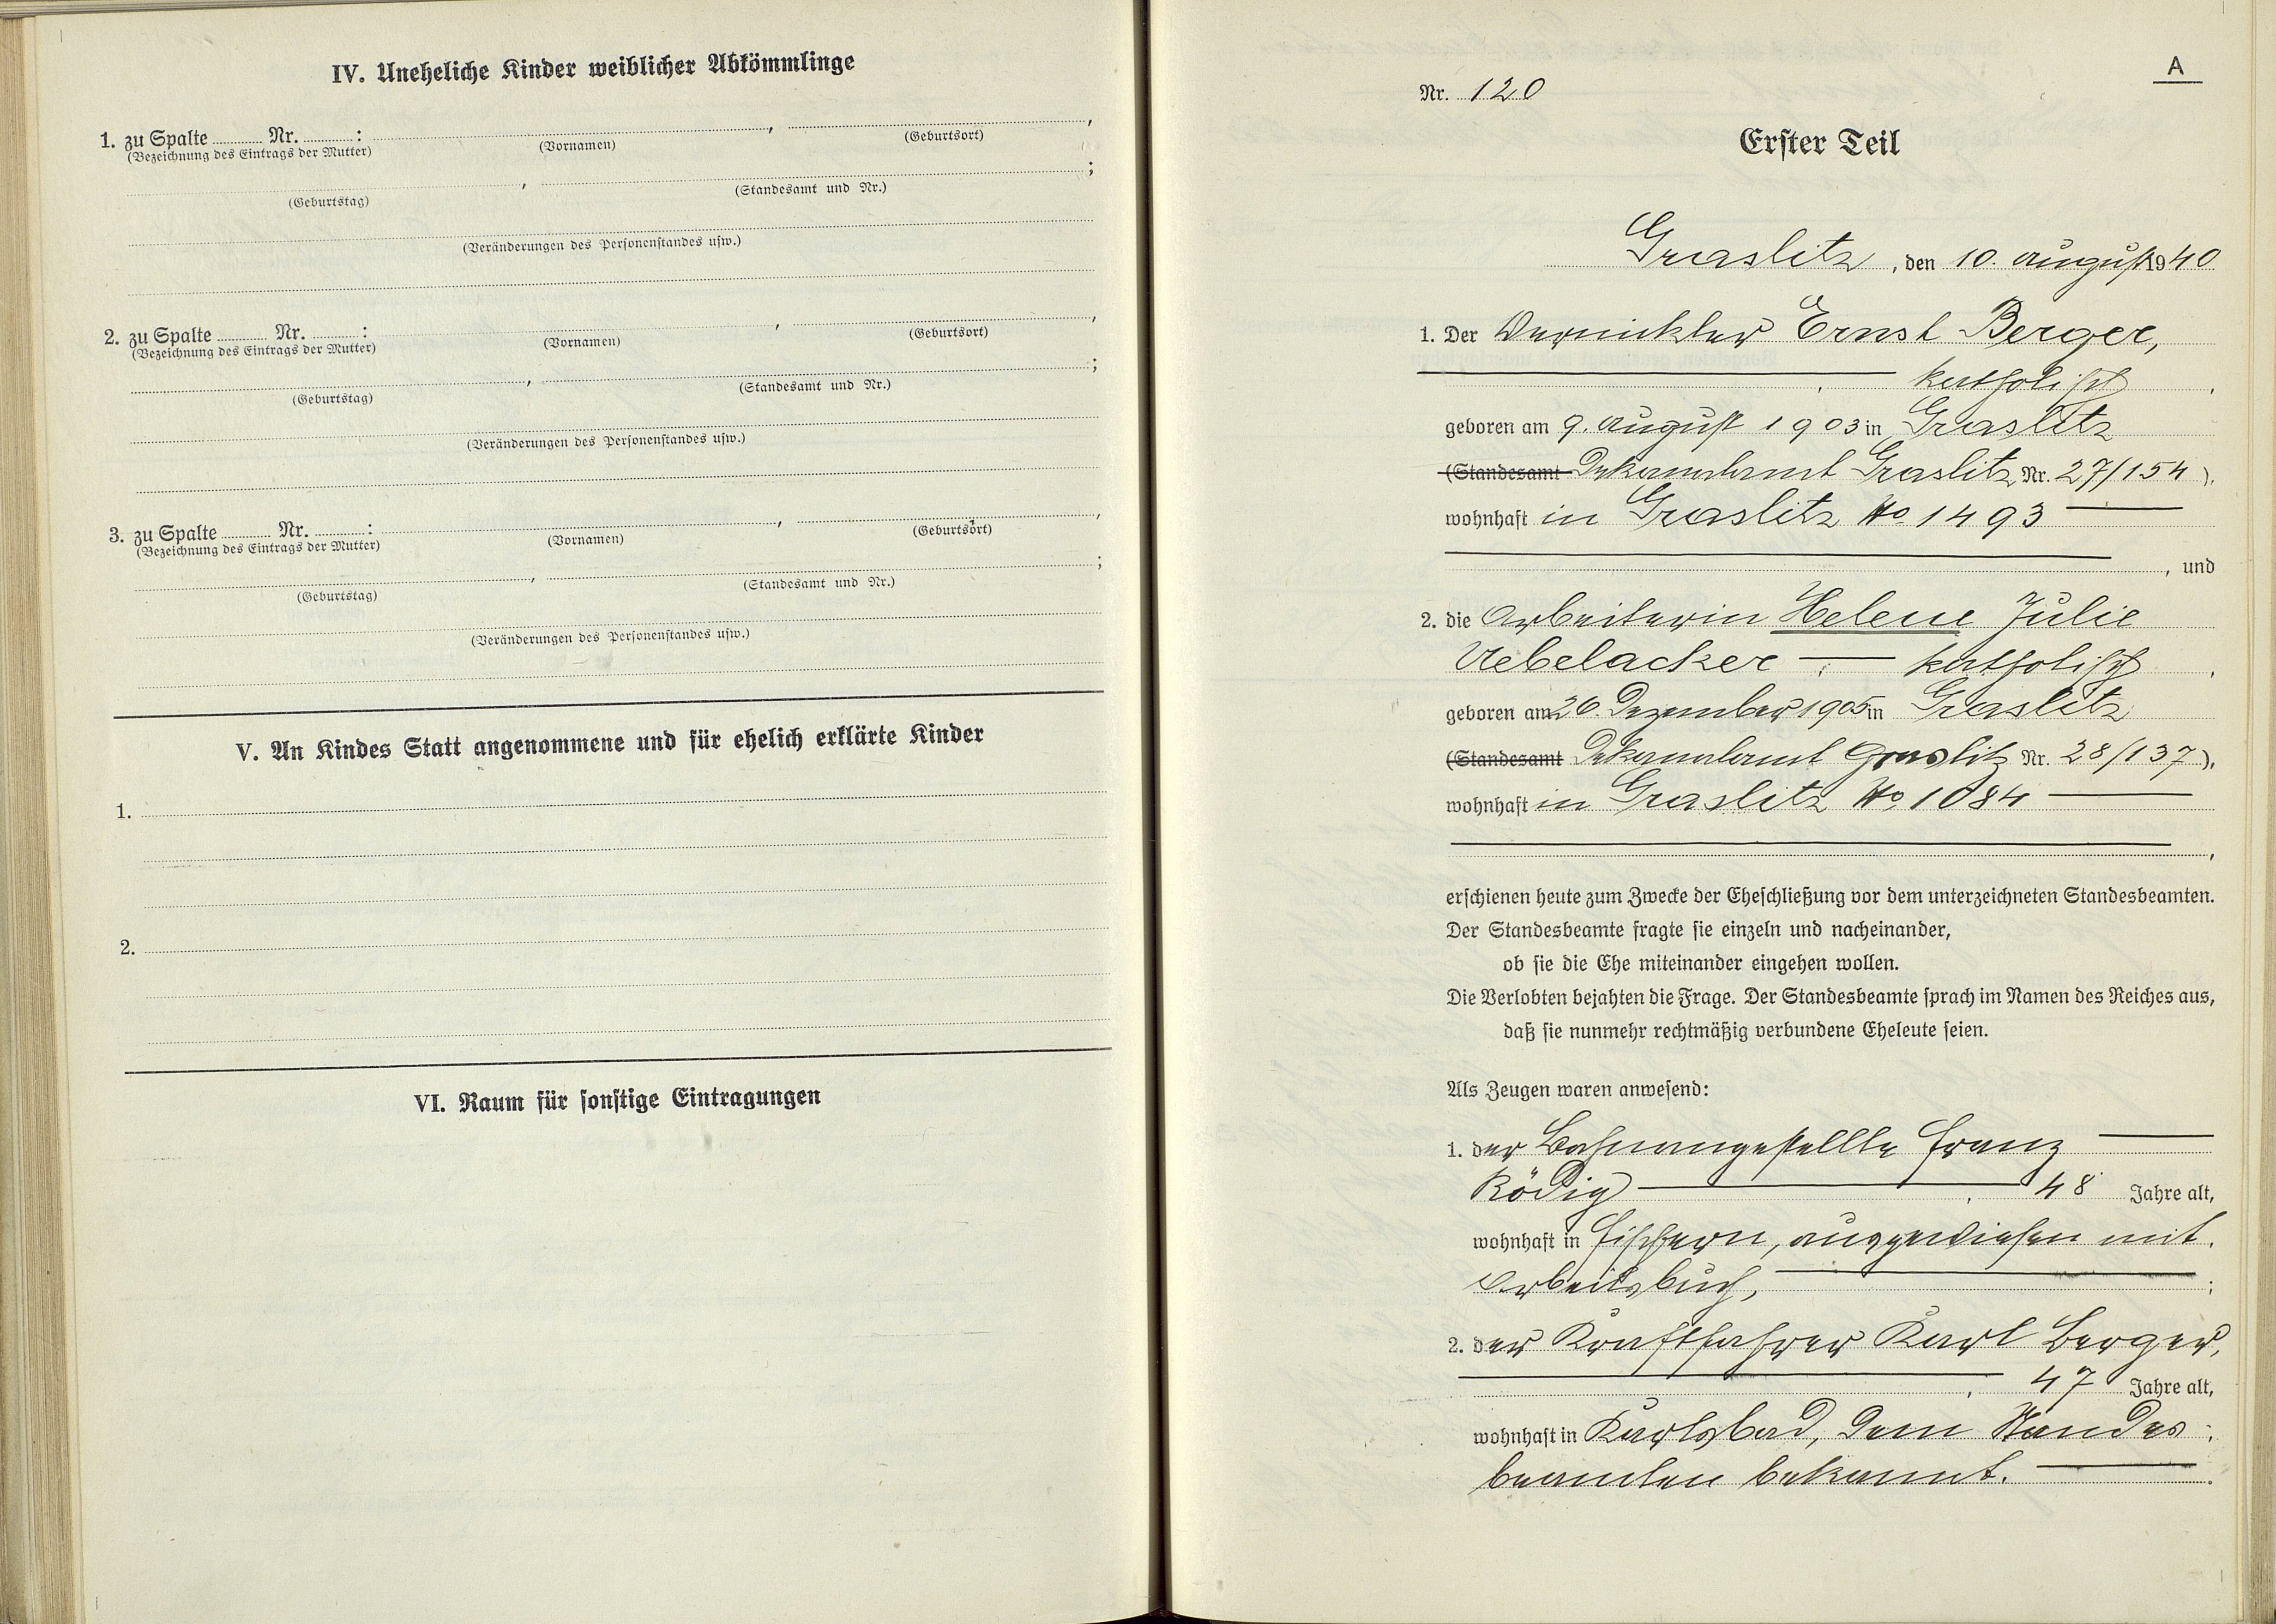 IV. Uneheliche Kinder weiblicher Abkömmlinge
1. zu Spalte ........ Nr. ........ : , ,
(Bezeichnung des Eintrags der Mutter) (Vornamen) (Geburtsort)
, ;
(Geburtstag) (Standesamt und Nr.)
(Veränderungen des Personenstandes usw.)
2. zu Spalte ........ Nr. ........ : , ,
(Bezeichnung des Eintrags der Mutter) (Vornamen) (Geburtsort)
, ;
(Geburtstag) (Standesamt und Nr.)
(Veränderungen des Personenstandes usw.)
3. zu Spalte ........ Nr. ........ : , ,
(Bezeichnung des Eintrags der Mutter) (Vornamen) (Geburtsort)
, ;
(Geburtstag) (Standesamt und Nr.)
(Veränderungen des Personenstandes usw.)
V. An Kindes Statt angenommene und für ehelich erklärte Kinder
1.
2.
VI. Raum für sonstige Eintragungen
A
Nr. 120
Erster Teil
Graslitz, den 10. August 1940
1. Der Vernickler Ernst Berger,
, katholisch,
geboren am 9. August 1903 in Graslitz
(Standesamt Dekanalamt Graslitz Nr. 27/154),
wohnhaft in Graslitz No 1493
, und
2. die Arbeiterin Helene Julie
Uebelacker, katholisch,
geboren am 26. Dezember 1905 in Graslitz
(Standesamt Dekanalamt Graslitz Nr. 28/137),
wohnhaft in Graslitz No 1084
,
erschienen heute zum Zwecke der Eheschließung vor dem unterzeichneten Standesbeamten.
Der Standesbeamte fragte sie einzeln und nacheinander,
ob sie die Ehe miteinander eingehen wollen.
Die Verlobten bejahten die Frage. Der Standesbeamte sprach im Namen des Reiches aus,
daß sie nunmehr rechtmäßig verbundene Eheleute seien.
Als Zeugen waren anwesend:
1. der Bahnangestellte Franz
Ködig, 48 Jahre alt,
wohnhaft in Fischern, ausgewiesen mit
Arbeitsbuch, ;
2. der Kraftfahrer Karl Berger,
, 47 Jahre alt,
wohnhaft in Karlsbad, dem Standes-
beamten bekannt.